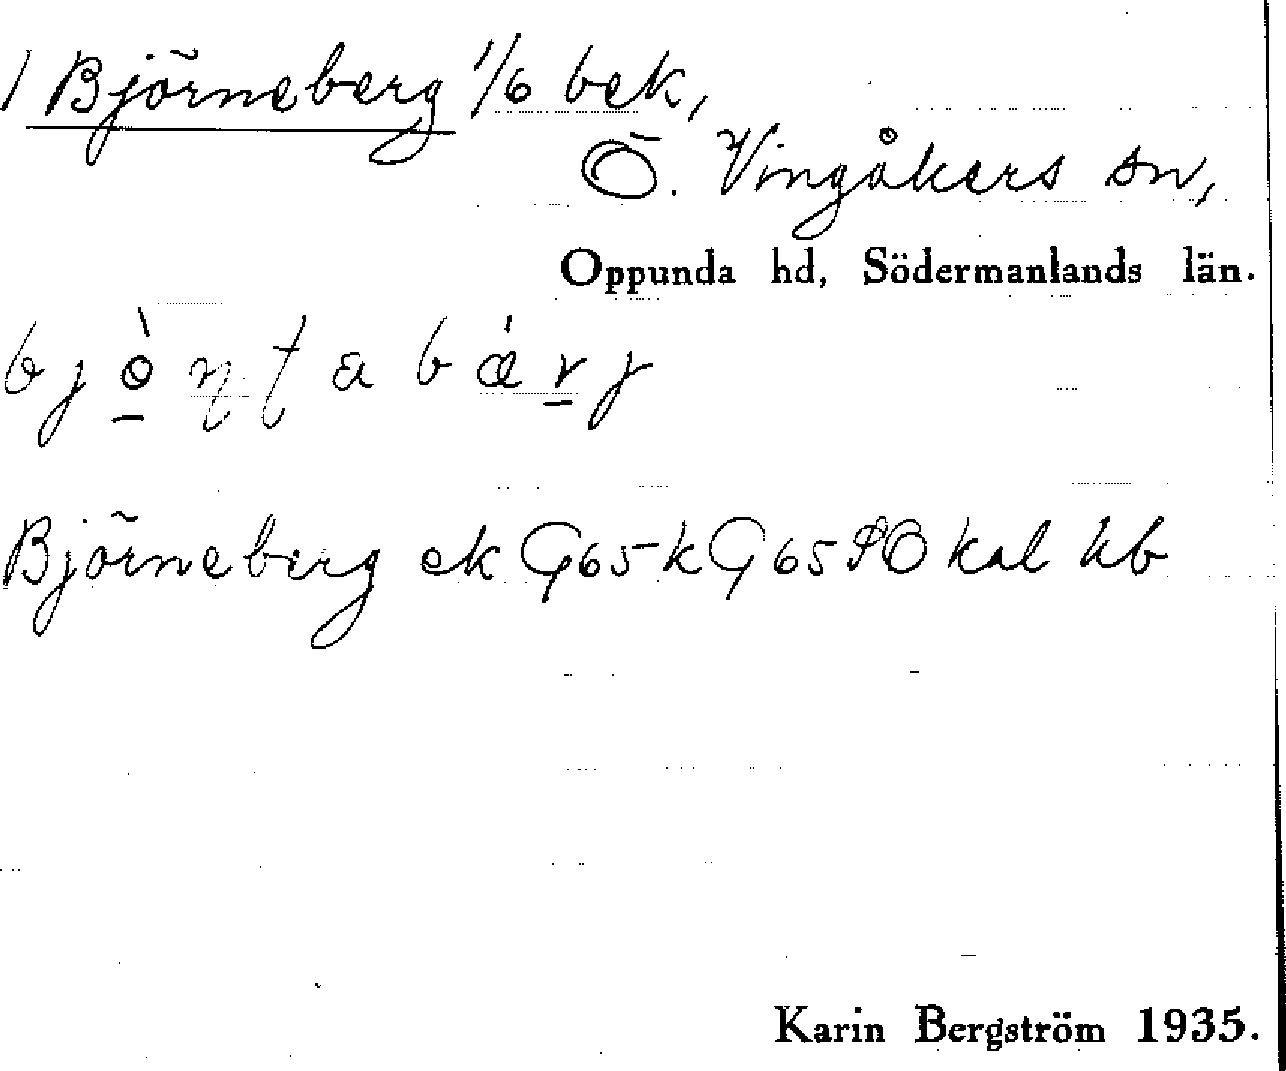 1 Björneberg 1/6 bek,
Ö. Vingåkers sn,
Oppunda hd, Södermanlands län.
Björneberg ek G65 k G65 kal hb
Karin Bergström 1935.